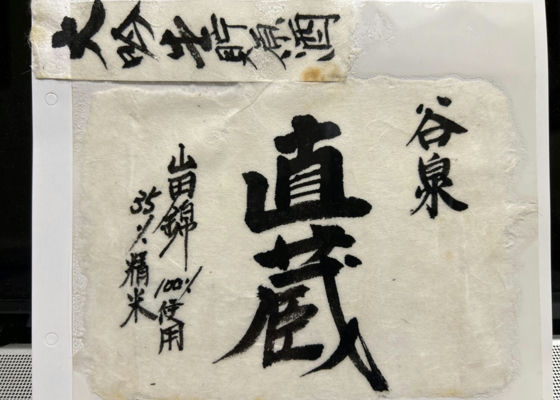 大吟生貯原酒
谷泉
直蔵
山田錦100%使用
35%精米